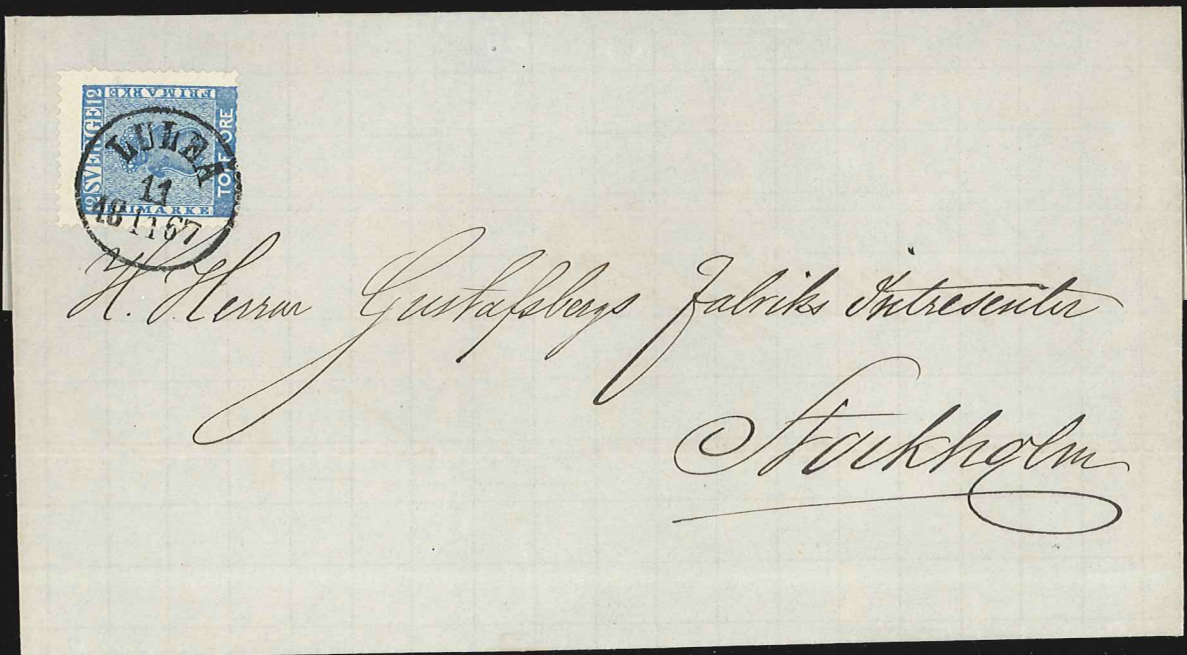 FRIMARKE
12 SVERIGE 12
TOLF ORE
FRIMARKE
LULEÅ
11
18 11 67
H. Herrar Gustafsbergs Fabriks Intressenter
Stockholm